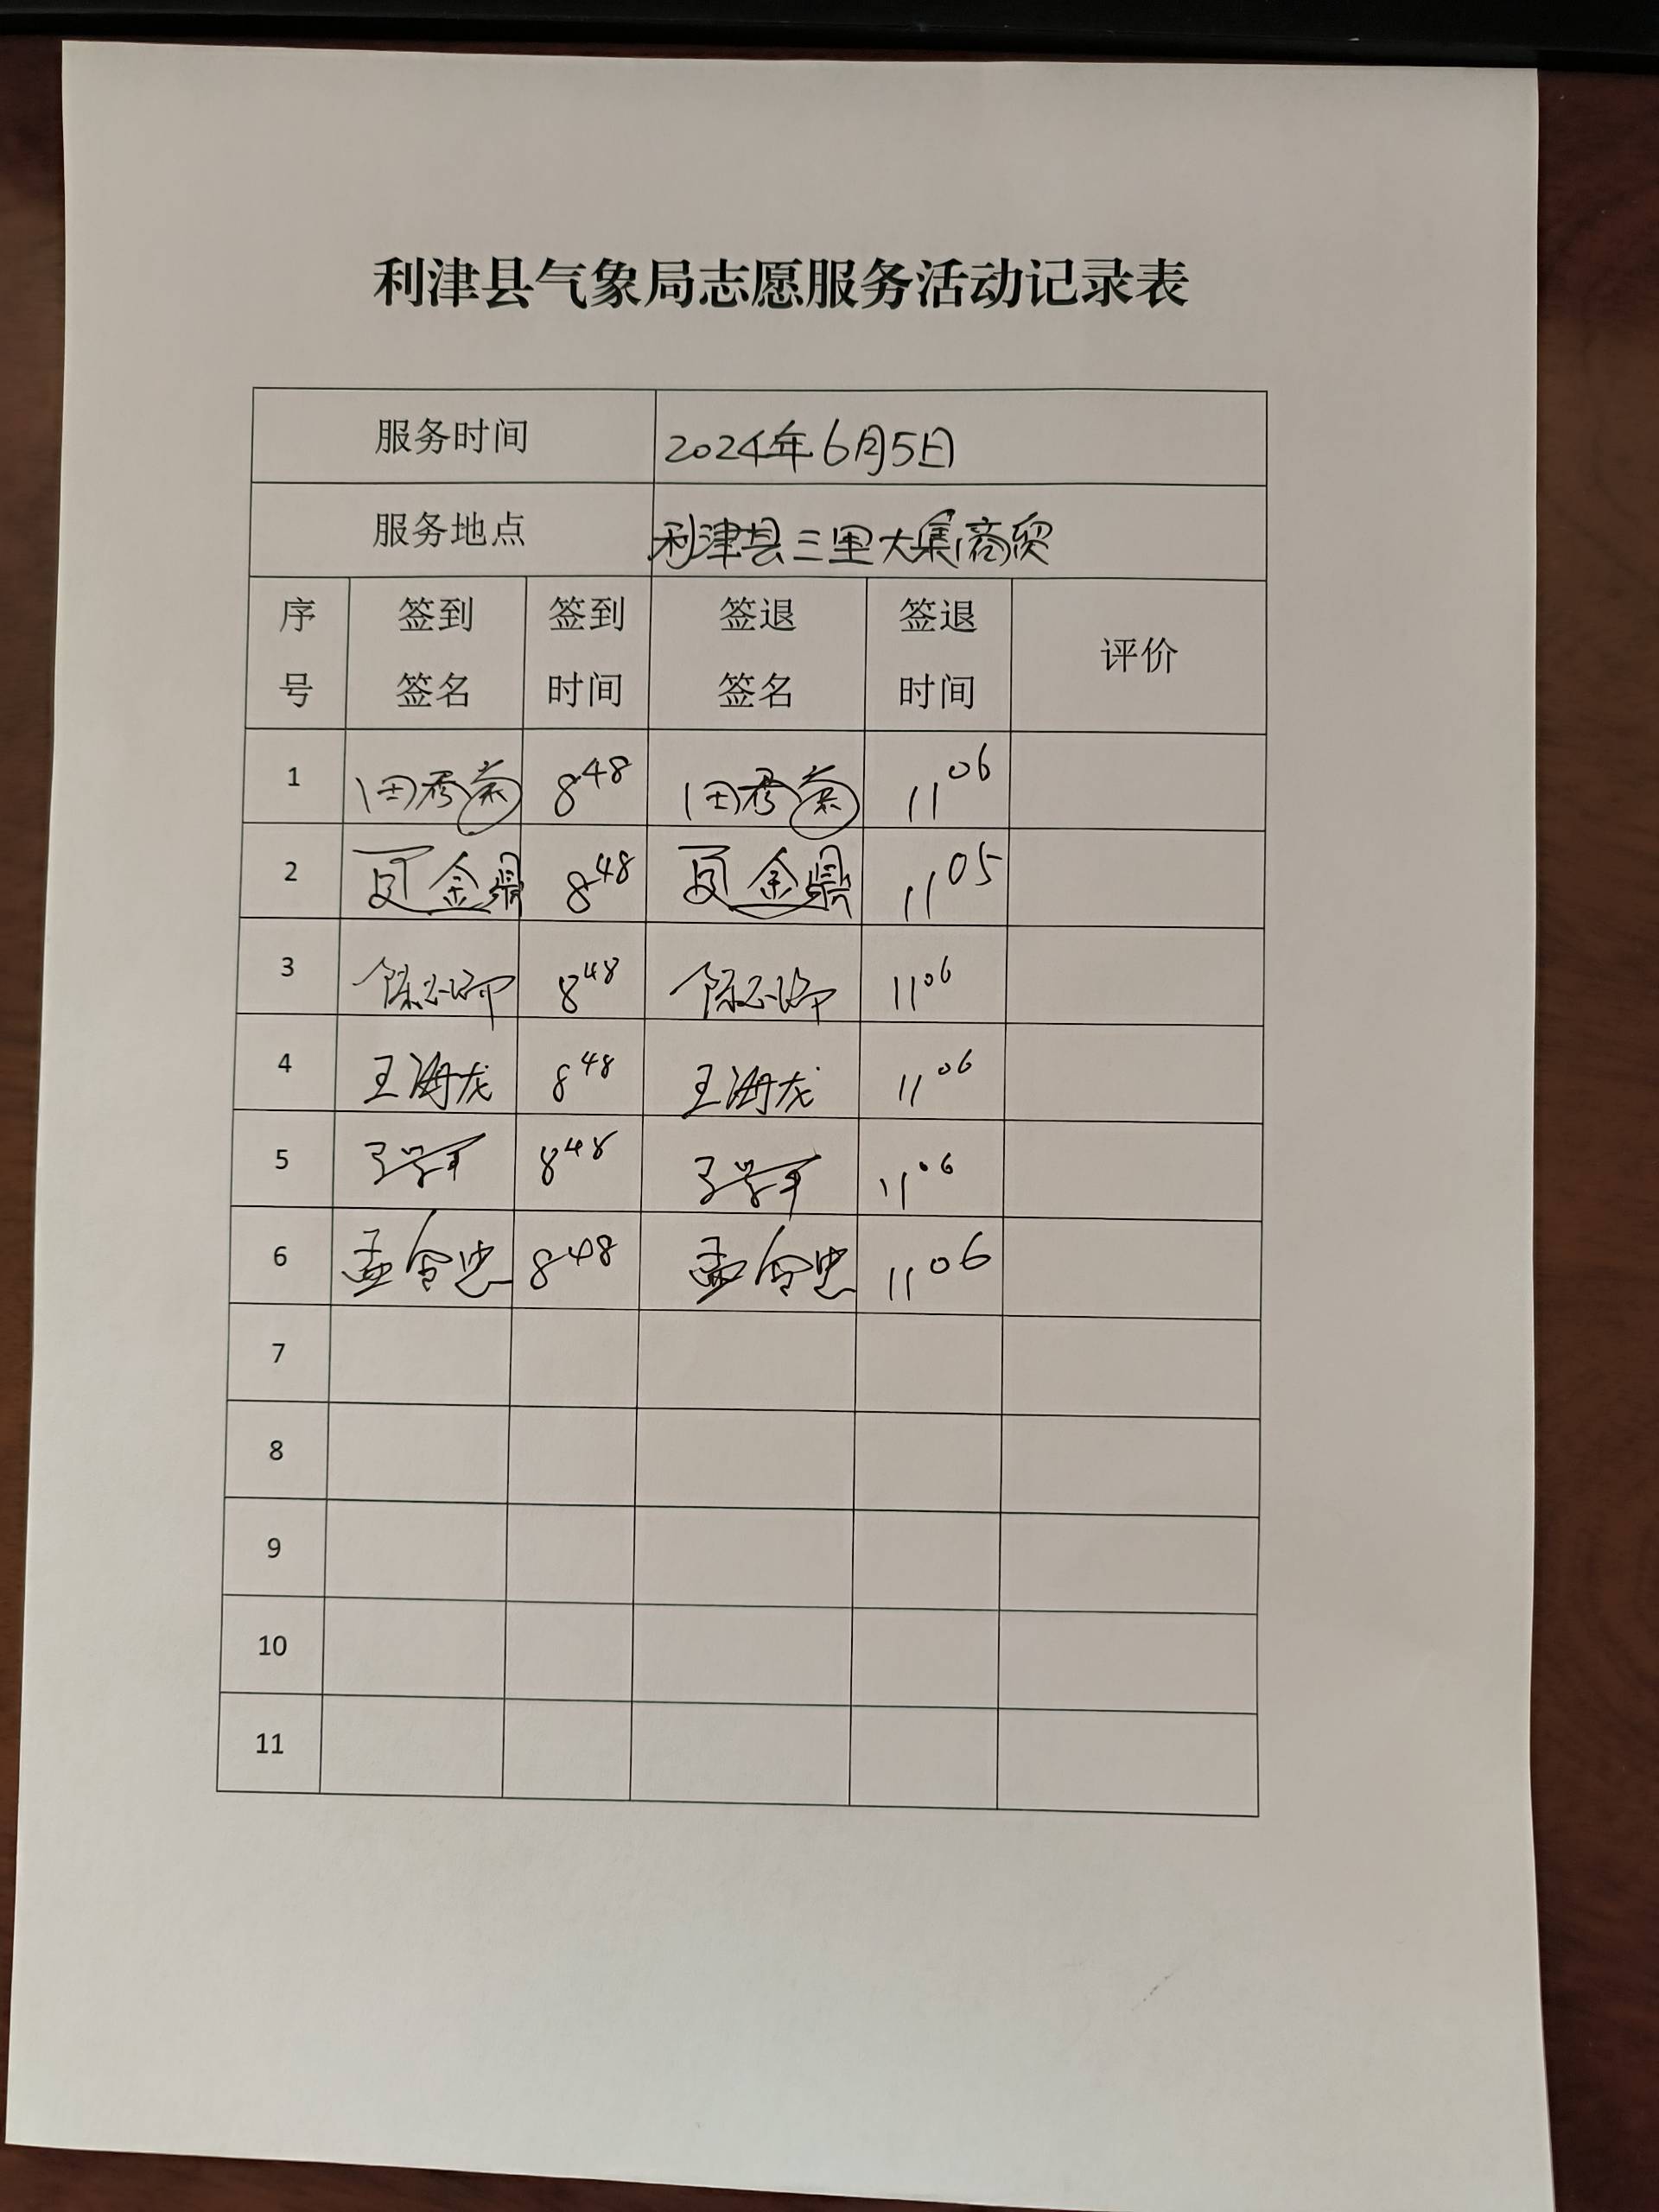 利津县气象局志愿服务活动记录表
服务时间 2024年6月5日
服务地点 利津县三里大集商贸
序号 签到签名 签到时间 签退签名 签退时间 评价
1 田秀 8 48 田秀 11 06
2 金鼎 8 48 金鼎 11 05
3 8 48 11 06
4 王海龙 8 48 王海龙 11 06
5 8 48 11 06
6 孟令忠 8 48 孟令忠 11 06
7
8
9
10
11